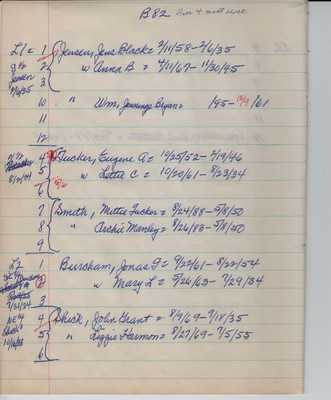 B82
L1 = 1 Jensen, Jens Black = 2/11/58 - 2/6/35
2 w Anna B = 4/11/67 - 11/30/95
Jensen 3
10 " Wm, Jennings Bryan = /95 - /61
11
12
4 Tucker, Eugene A = 10/25/52 - 2/19/46
5 w Lottie C = 10/20/61 - 8/23/34
8/2/34 6
7 Smith, Mettie Tucker = 8/24/88 - 5/8/50
8 " Archie Manley = 8/26/83 - 5/8/50
9
L2 1 Burcham, Jonas F = 9/22/61 - 8/22/54
2 w Mary L = 5/26/63 - 7/29/34
7/31/34 3
4 Shick, John Grant = 8/9/69 - 9/18/35
5 " Lizzie Harmon = 8/27/69 - 7/5/55
6